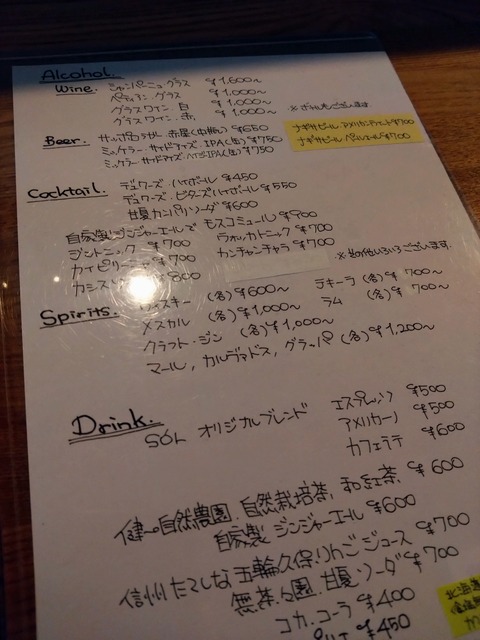 Alcohol.
Wine. シャンパーニュ グラス ¥1,600～
ペティアン. グラス ¥1,000～
グラスワイン. 白 ¥1,000～
グラスワイン. 赤 ¥1,000～
※ボトルもございます.
Beer. サッポロラガー. 赤星(中瓶) ¥650
ミッケラー. サイドアイズ. IPA(缶) ¥750
ミッケラー. サイドアイズ. ヘイジーIPA(缶) ¥750
ナギサビール アメリカンウィート ¥700
ナギサビール ペールエール ¥700
Cocktail. デュワーズ. ハイボール ¥450
デュワーズ. ビターズハイボール ¥550
甘夏カンパリソーダ ¥600
自家製ジンジャーエールで モスコミュール ¥900
ジントニック ¥700 ウォッカトニック ¥700
カイピリー ¥700 カンチャンチャラ ¥700
カシス 800
※その他いろいろございます.
Spirits. スキー (各) ¥600～ テキーラ (各) ¥700～
メスカル (各) ¥1,000～ ラム (各) ¥700～
クラフト・ジン (各) ¥1,000～
マール, カルヴァドス, グラッパ (各) ¥1,200～
Drink.
SÓL オリジナルブレンド エスプレッソ ¥500
アメリカーノ ¥500
カフェラテ ¥600
健一自然農園. 自然栽培茶, 和紅茶 ¥600
自家製 ジンジャーエール ¥600
信州たてしな 五輪久保. りんごジュース ¥700
無茶々園. 甘夏ソーダ ¥700
コカ・コーラ ¥400
¥450
北海道